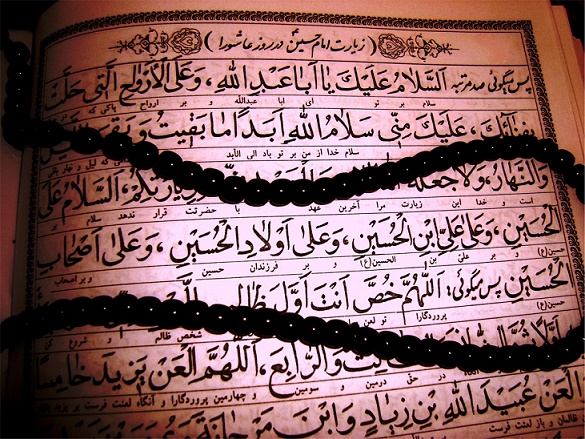 (زیارت امام حسین ع در روز عاشورا)
پس میگوئی صد مرتبه اَلسَّلامُ عَلَیْكَ یا اَبا عَبْدِ اللهِ، وَعَلَى الْاَرْواحِ الَّتی حَلَّتْ
سلام بر تو ای ابا عبدالله و بر ارواح پاکی که
بِفِنآئِكَ، عَلَیْكَ مِنّی سَلامُ اللهِ اَبَداً ما بَقیتُ وَ بَقِیَ
سلام خدا از من بر تو باد الی الابد که لیل و نهار باقی
وَالنَّهارُ، وَلا جَعَلَهُ اللهُ زِیارَتِكُمْ، اَلسَّلامُ عَلَى
است و خدا این زیارت مرا آخرین عهد با حضرتت قرار ندهد سلام بر
الْحُسَیْنِ، وَعَلى عَلِیِّ ابْنِ الْحُسَیْنِ، وَعَلى اَوْلادِ الْحُسَیْنِ، وَعَلى اَصْحابِ
حسین(ع) و بر علی بن الحسین(ع) و بر فرزندان حسین و بر اصحاب
الْحُسَیْنِ پس میگوئی: اَللّهُمَّ خُصَّ اَنْتَ اَوَّلَ ظالِمٍ
حسین(ع) پروردگارا تو لعن شخص ظالم و شروع
وَالرّابِعَ، اَللّهُمَّ الْعَنْ یَزیدَ خامِساً
در حق دومین و سومین و چهارمین پروردگارا و آنگاه لعنت فرست بر یزید
وَالْعَنْ عُبَیْدَ اللهِ بْنَ زِیادٍ وَابْنَ مَرْجانَةَ